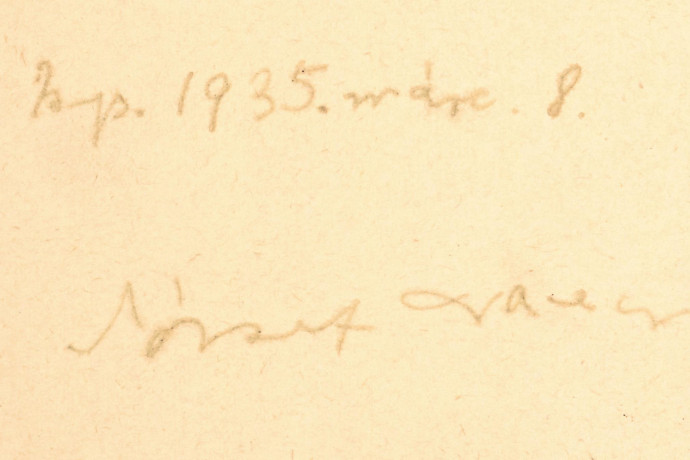 Bp. 1935. márc. 8.
József